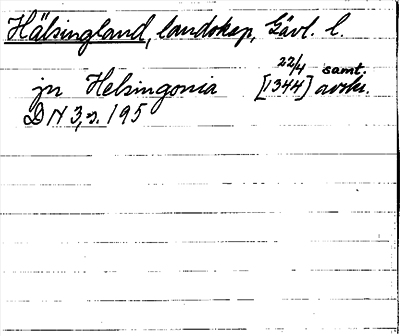 Hälsingland, landskap, Gävl. l.
jn Helsingonia [1344] 22/4 samt. avskr.
DN 3, s. 195